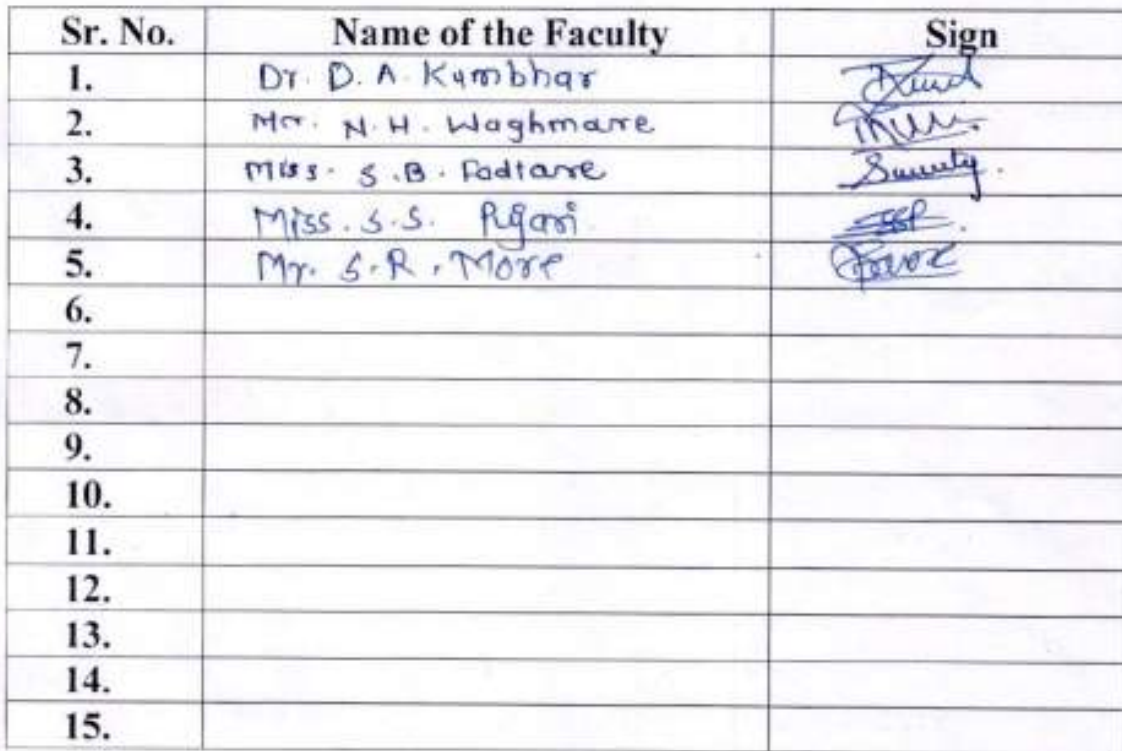 Sr. No. Name of the Faculty Sign
1. Dr. D. A. Kumbhar
2. Mr. N. H. Waghmare
3. Miss. S. B. Fadtare
4. Miss. S. S. Pujari
5. Mr. S. R. More
6.
7.
8.
9.
10.
11.
12.
13.
14.
15.